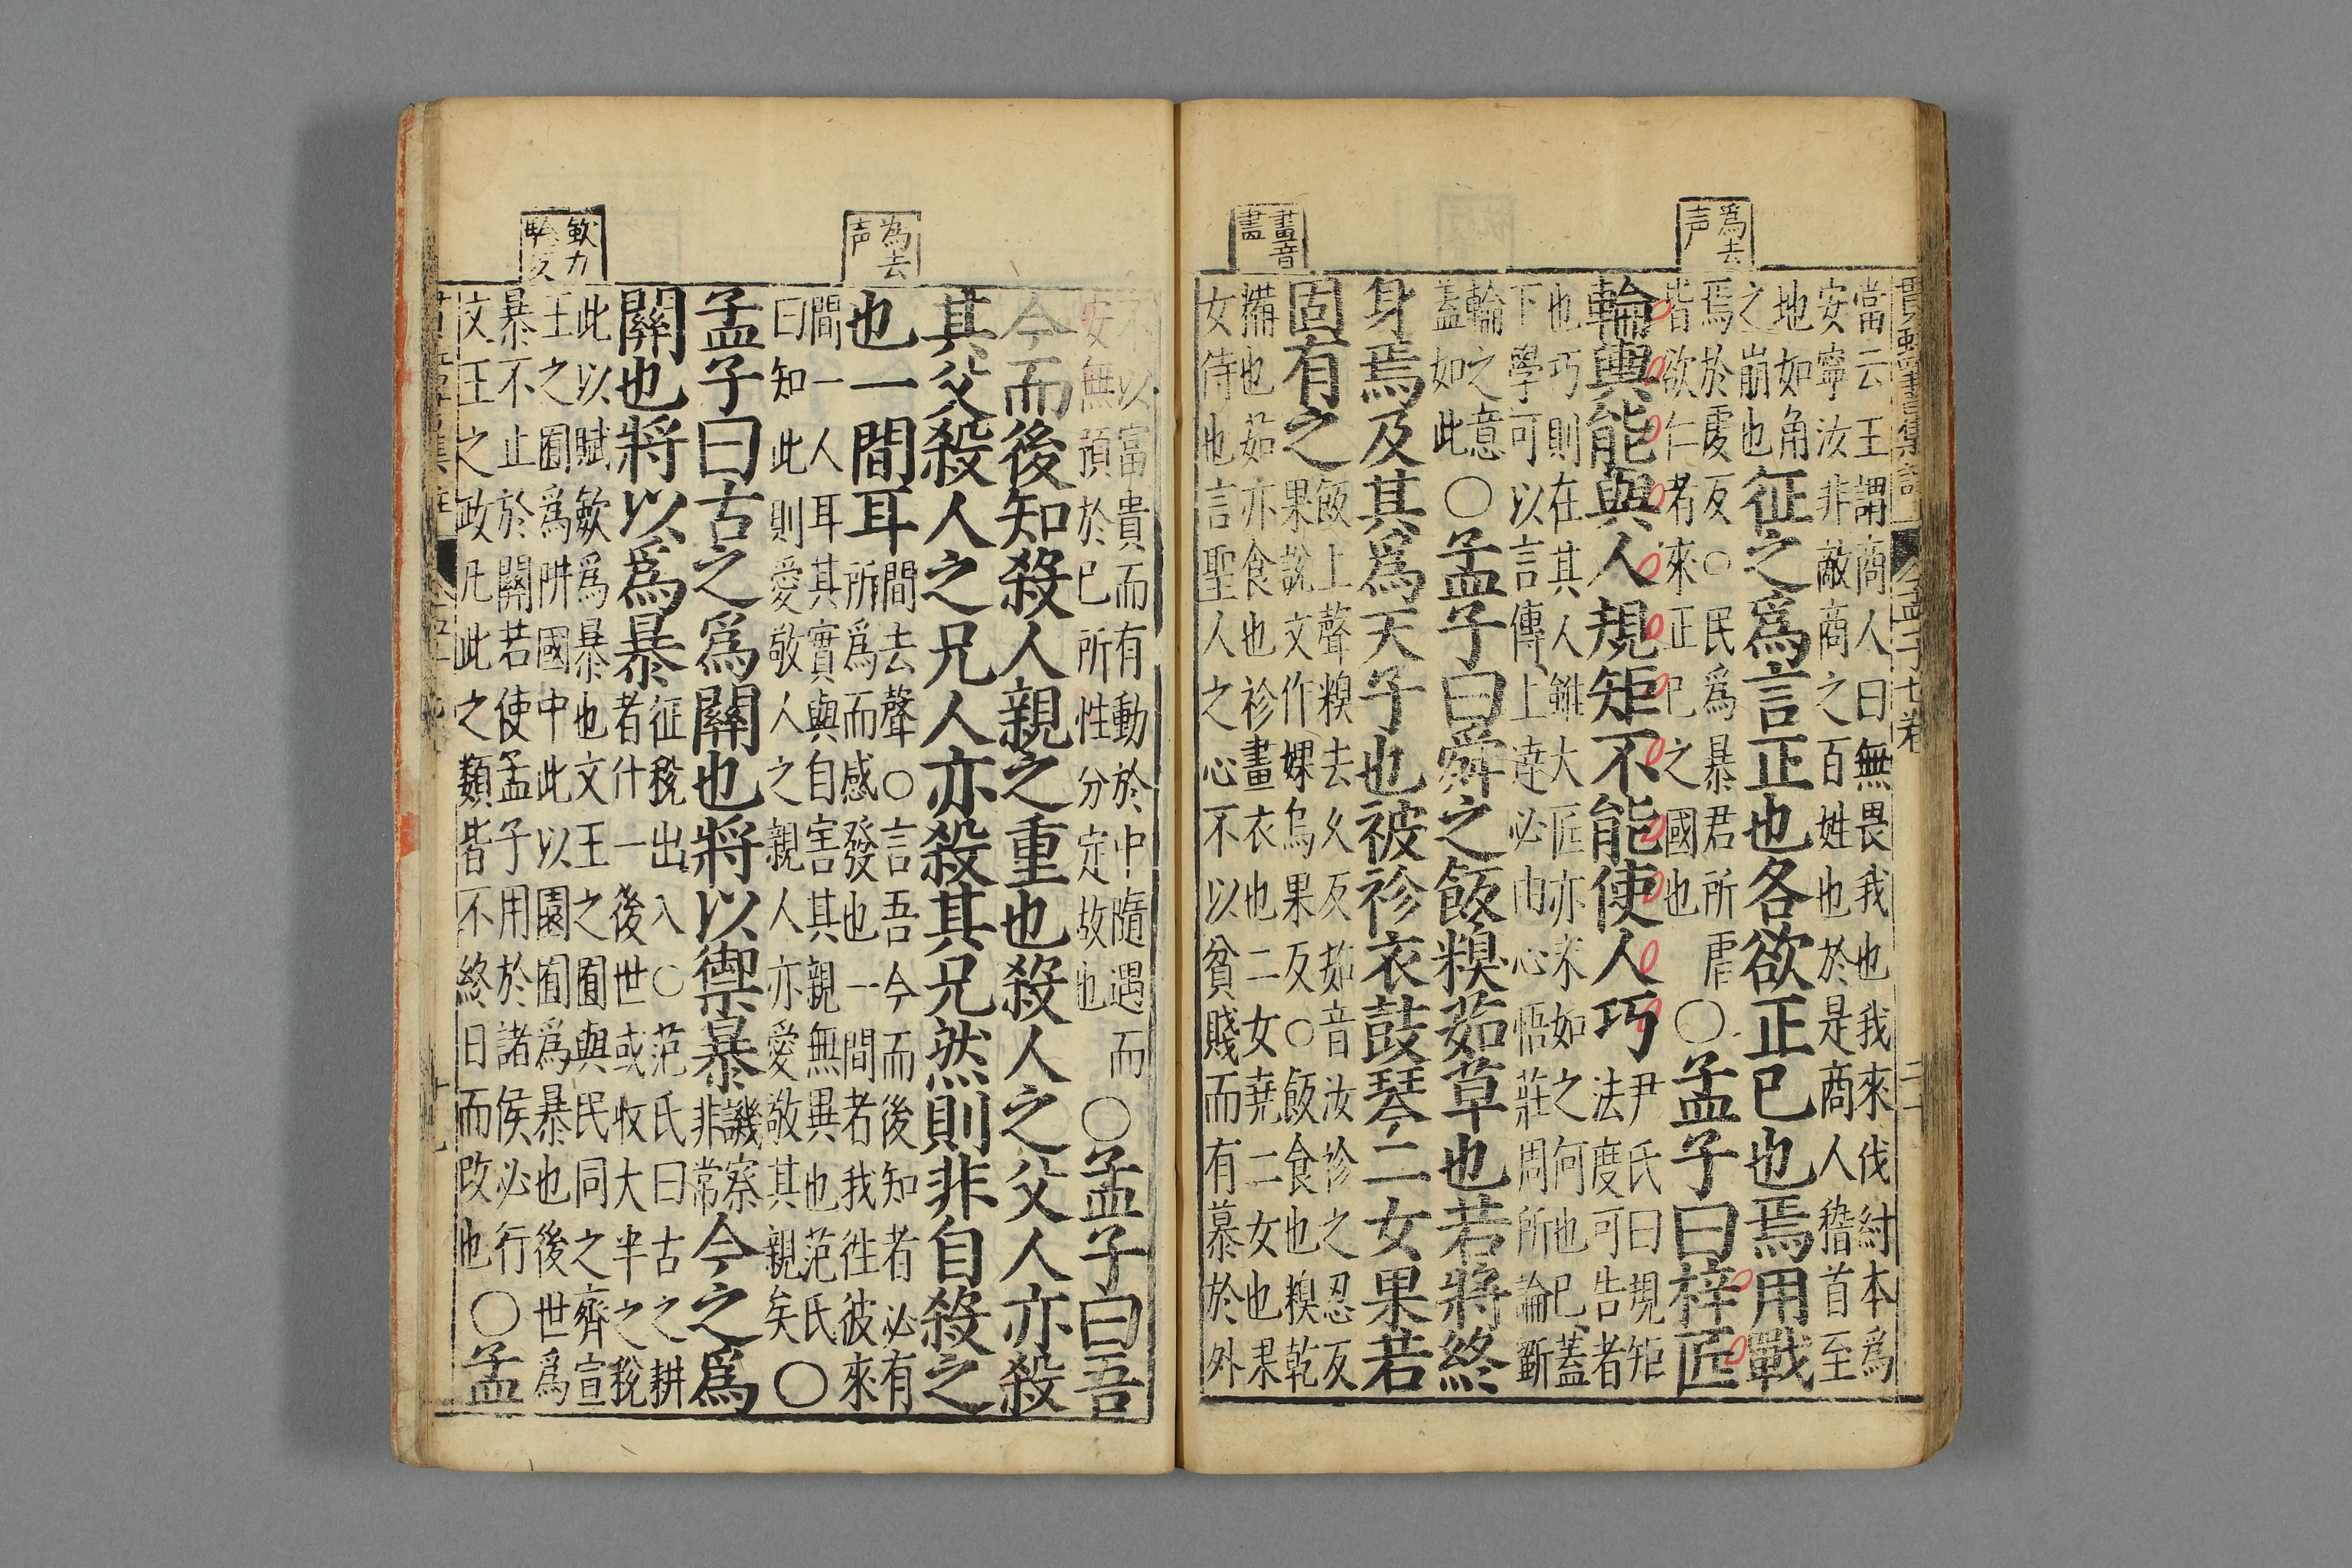 爲去
声
畫音
畫
當云王謂商人曰無畏我也我來伐紂本爲
安寧汝非敵商之百姓也於是商人稽首至
地如角
之崩也
征之爲言正也各欲正已也焉用戰
焉於虔反○民爲暴君所虐
皆欲仁者來正已之國也
○孟子曰梓匠
輪輿能與人規矩不能使人巧
尹氏曰規矩
法度可告者
也巧則在其人雖大匠亦末如之何也已蓋
下學可以言傳上達必由心悟莊周所論斲
輪之意
蓋如此
○孟子曰舜之飯糗茹草也若將終
身焉及其爲天子也被袗衣鼓琴二女果若
固有之
飯上聲糗去久反茹音汝袗之忍反
果說文作婐烏果反○飯食也糗乾
糒也茹亦食也袗畫衣也二女堯二女也果
女侍也言聖人之心不以貧賤而有慕於外
爲去
声
歛力
驗反
不以富貴而有動於中隨遇而
安無預於已所性分定故也
○孟子曰吾
今而後知殺人親之重也殺人之父人亦殺
其父殺人之兄人亦殺其兄然則非自殺之
也一間耳
間去聲○言吾今而後知者必有
所爲而感發也一間者我徃彼來
間一人耳其實與自害其親無異也范氏
曰知此則愛敬人之親人亦愛敬其親矣
○
孟子曰古之爲關也將以禦暴
譏察
非常
今之爲
關也將以爲暴
征稅出入○范氏曰古之耕
者什一後世或收大半之稅
此以賦歛爲暴也文王之囿與民同之齊宣
王之囿爲阱國中此以園囿爲暴也後世爲
暴不止於關若使孟子用於諸侯必行
文王之政凡此之類皆不終日而改也
○孟